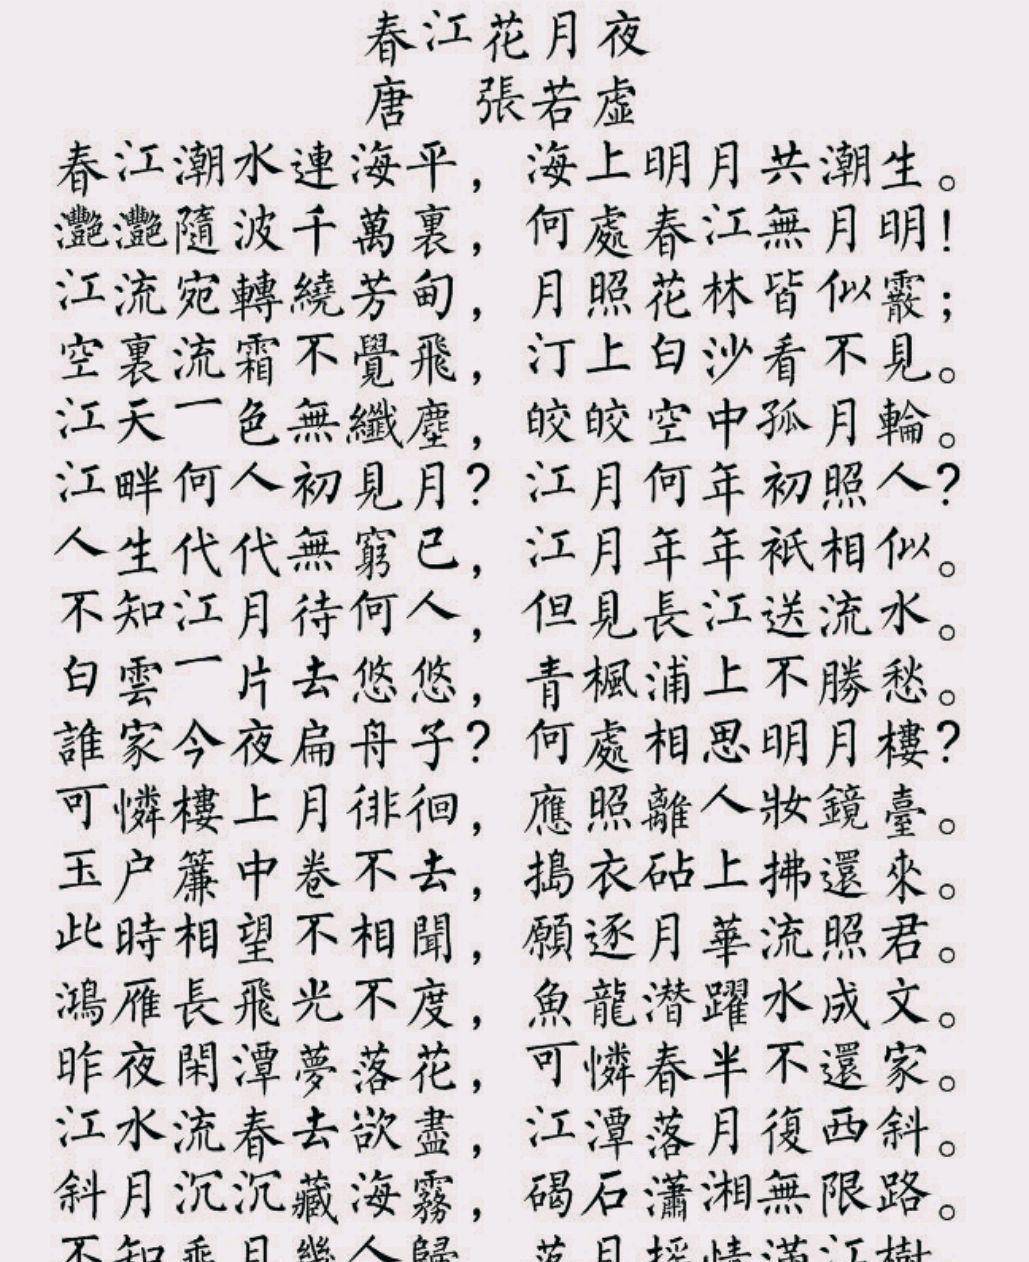 春江花月夜
唐　張若虛
春江潮水連海平，海上明月共潮生。
灩灩隨波千萬裏，何處春江無月明！
江流宛轉繞芳甸，月照花林皆似霰；
空裏流霜不覺飛，汀上白沙看不見。
江天一色無纖塵，皎皎空中孤月輪。
江畔何人初見月？江月何年初照人？
人生代代無窮已，江月年年衹相似。
不知江月待何人，但見長江送流水。
白雲一片去悠悠，青楓浦上不勝愁。
誰家今夜扁舟子？何處相思明月樓？
可憐樓上月徘徊，應照離人妝鏡臺。
玉户簾中卷不去，搗衣砧上拂還來。
此時相望不相聞，願逐月華流照君。
鴻雁長飛光不度，魚龍潛躍水成文。
昨夜閑潭夢落花，可憐春半不還家。
江水流春去欲盡，江潭落月復西斜。
斜月沉沉藏海霧，碣石瀟湘無限路。
不知乘月幾人歸　落月摇情滿江樹